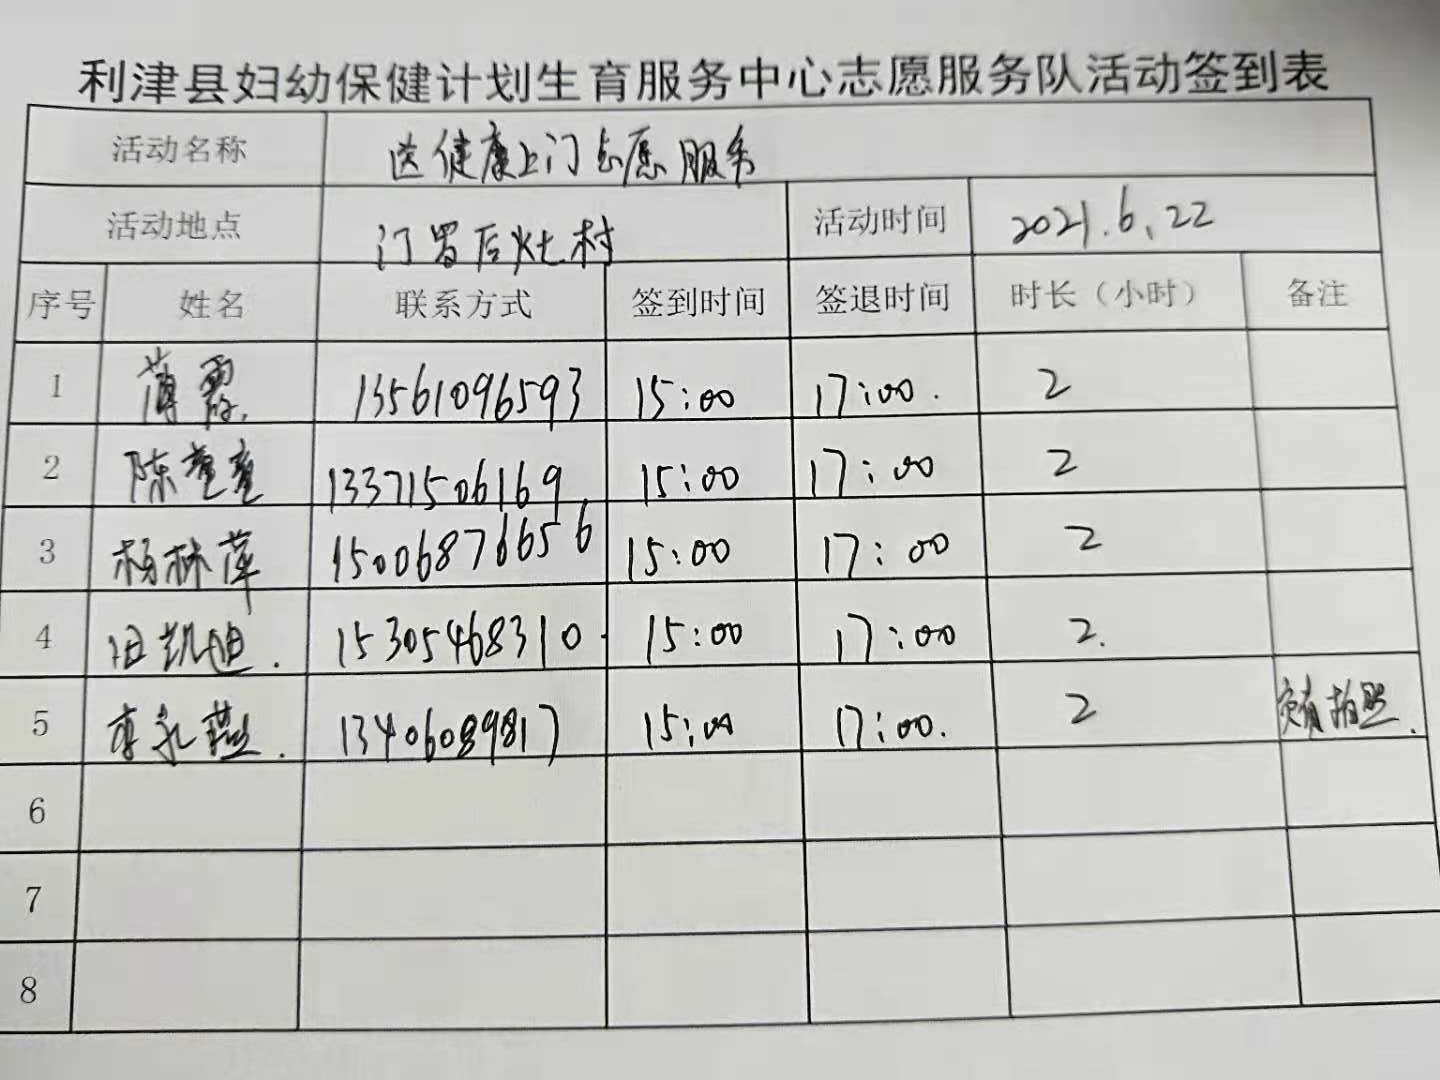 利津县妇幼保健计划生育服务中心志愿服务队活动签到表
活动名称 送健康上门志愿服务
活动地点 汀罗后灶村 活动时间 2021.6.22
序号 姓名 联系方式 签到时间 签退时间 时长（小时） 备注
1 薄霞 13561096593 15:00 17:00. 2
2 陈童童 13371506169 15:00 17:00 2
3 杨林萍 15006876656 15:00 17:00 2
4 田凯迪. 15305468310 15:00 17:00 2.
5 李永燕. 13406089817 15:00 17:00. 2 负责拍照.
6
7
8